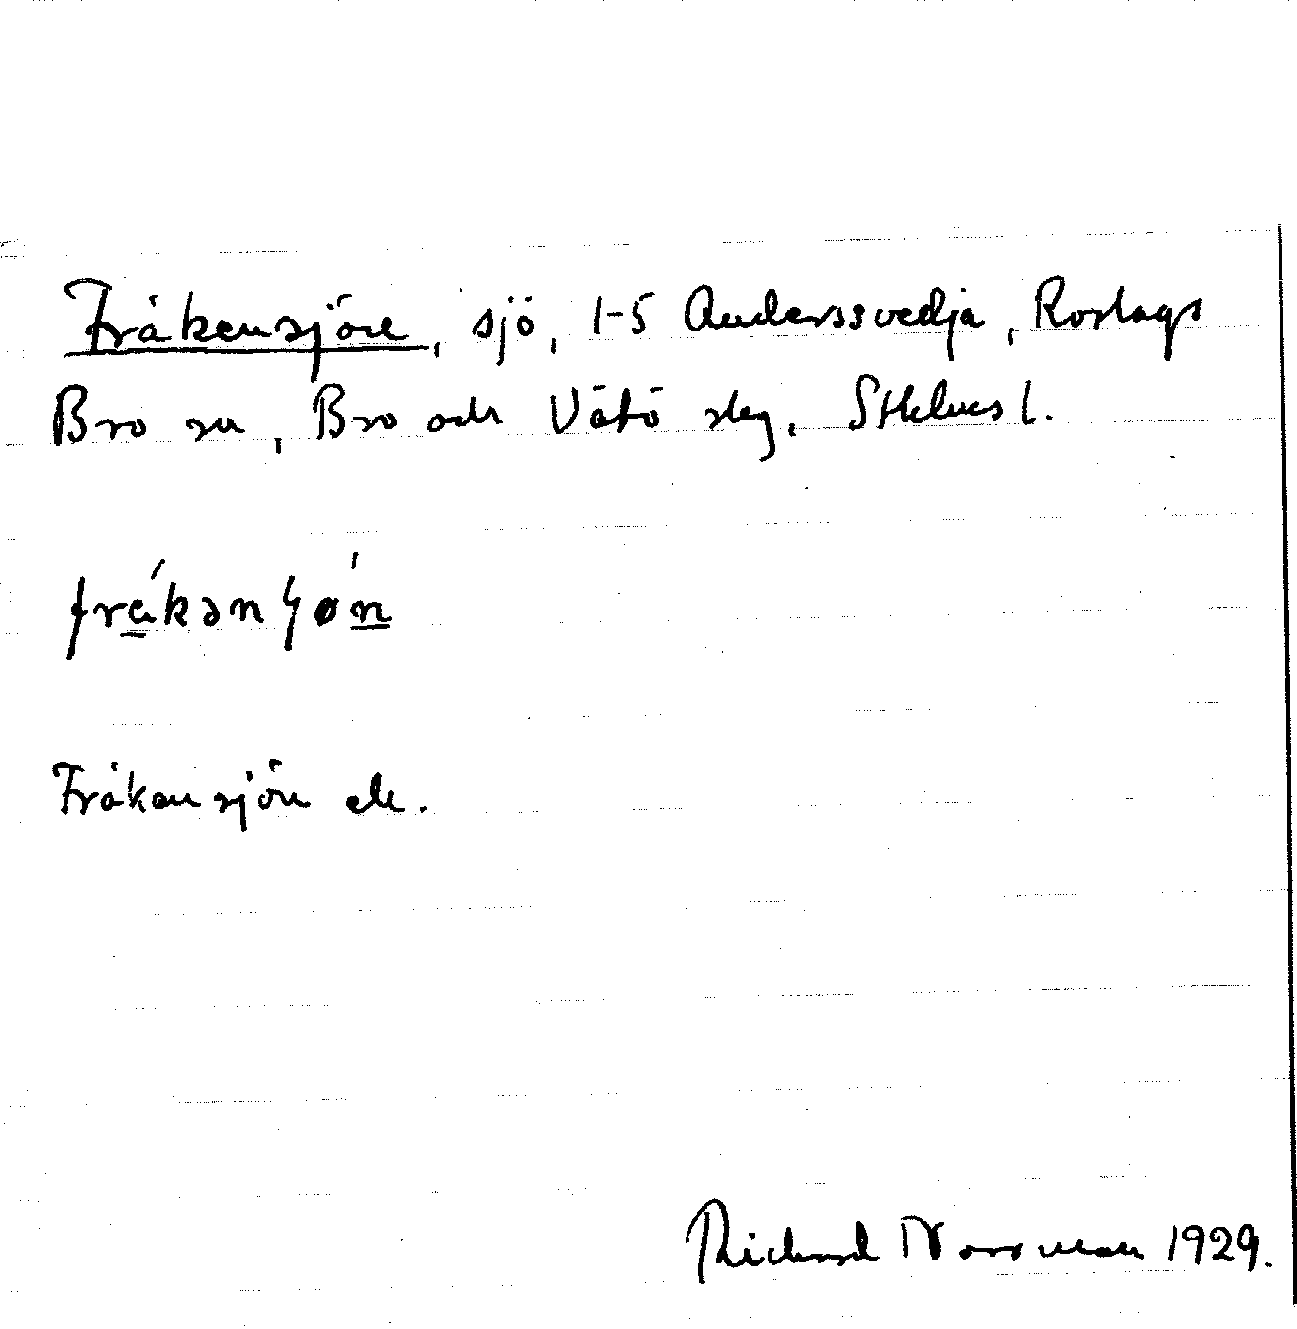 Fräkensjön, sjö, 1-5 Anderssvedja, Roslags
Bro sn, Bro och Vätö slg, Sthlms l.
Fräkensjön ek.
Richard Norrman 1929.